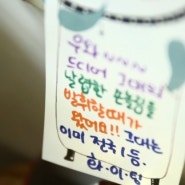 우와
드디어 그대의
날렵한 손놀림을
발휘할때가
왔어요!! 그대는
이미 전국 1등.
화·이·팅